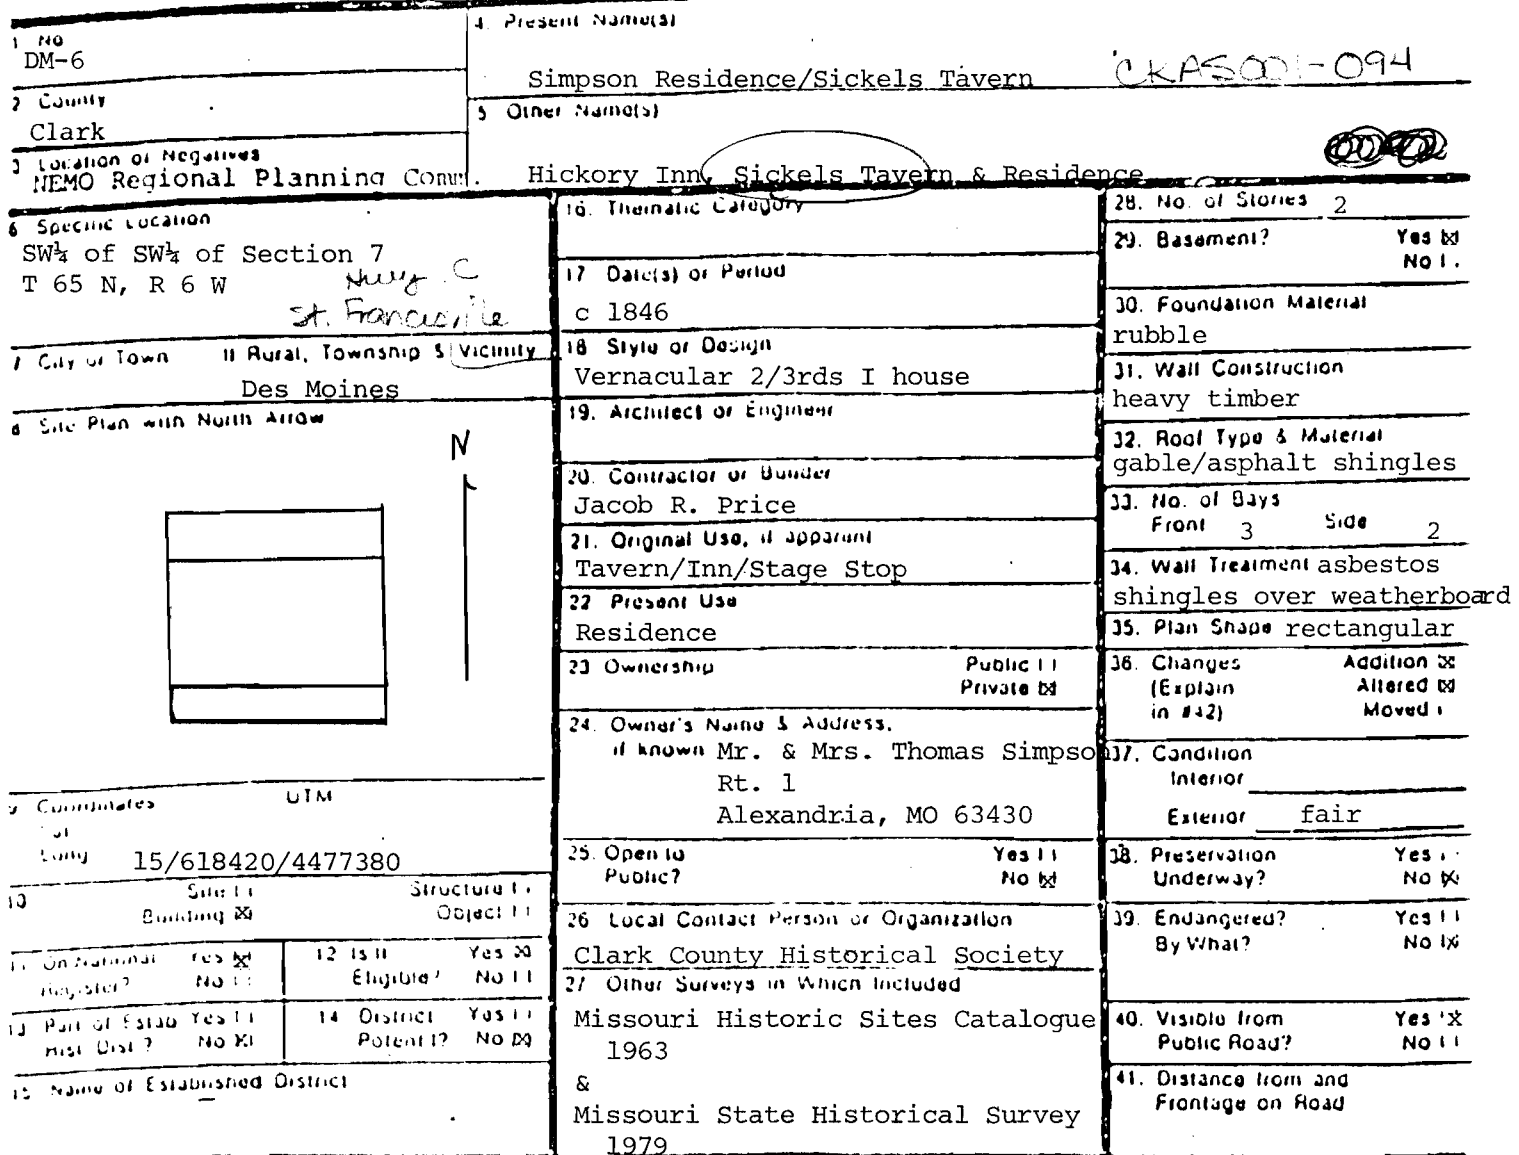 1 No
DM-6
2 County
Clark
3 Location of Negatives
NEMO Regional Planning Comm.
4. Present Name(s)
Simpson Residence/Sickels Tavern
CKAS001-094
5 Other Name(s)
Hickory Inn, Sickels Tavern & Residence
6 Specific Location
SW¼ of SW¼ of Section 7
T 65 N, R 6 W
Hwy. C
St. Francisville
7 City or Town If Rural, Township & Vicinity
Des Moines
8 Site Plan with North Arrow
N
9 Coordinates UTM
Lat
Long
15/618420/4477380
10 Site Structure
Building ☒ Object
11 On National Yes ☒
Register? No
12 Is It Yes ☒
Eligible? No
13 Part of Estab Yes
Hist Dist? No ☒
14 District Yes
Potent'l? No ☒
15 Name of Established District
16. Thematic Category
17 Date(s) or Period
c 1846
18 Style or Design
Vernacular 2/3rds I house
19. Architect or Engineer
20. Contractor or Builder
Jacob R. Price
21. Original Use, if apparent
Tavern/Inn/Stage Stop
22 Present Use
Residence
23 Ownership Public
Private ☒
24. Owner's Name & Address,
if known Mr. & Mrs. Thomas Simpson
Rt. 1
Alexandria, MO 63430
25. Open to Yes
Public? No ☒
26 Local Contact Person or Organization
Clark County Historical Society
27 Other Surveys in Which Included
Missouri Historic Sites Catalogue
1963
&
Missouri State Historical Survey
1979
28. No. of Stories 2
29. Basement? Yes ☒
No
30. Foundation Material
rubble
31. Wall Construction
heavy timber
32. Roof Type & Material
gable/asphalt shingles
33. No. of Bays
Front 3 Side 2
34. Wall Treatment asbestos
shingles over weatherboard
35. Plan Shape rectangular
36. Changes Addition ☒
(Explain Altered ☒
in #42) Moved
37. Condition
Interior
Exterior fair
38. Preservation Yes
Underway? No ☒
39. Endangered? Yes
By What? No ☒
40. Visible from Yes ☒
Public Road? No
41. Distance from and
Frontage on Road